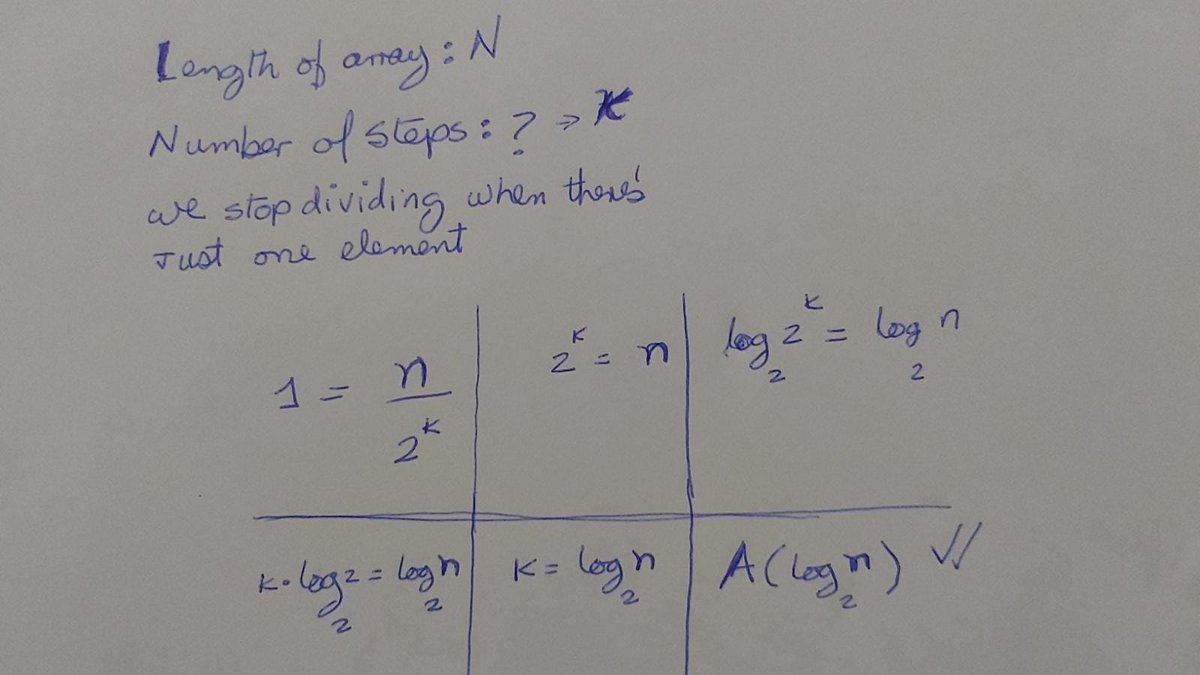 Length of array: N
Number of steps: ? → K
we stop dividing when there's
Just one element
1 = n / 2^K
2^K = n
log₂ 2^K = log₂ n
K · log₂ 2 = log₂ n
K = log₂ n
A(log₂ n) ✓✓